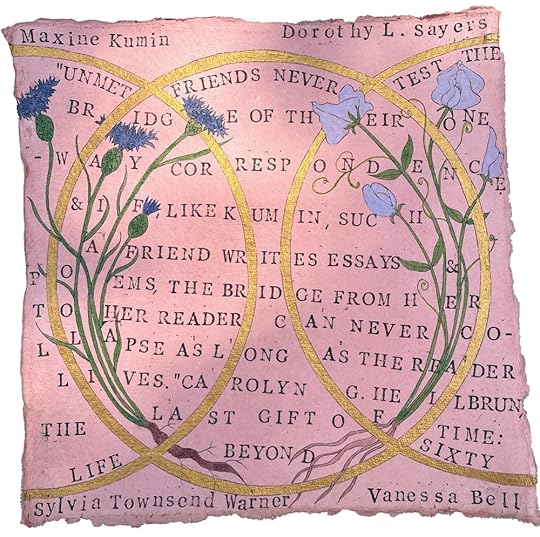 Maxine Kumin Dorothy L. Sayers
"UNMET FRIENDS NEVER TEST THE
BRIDGE OF THEIR ONE
-WAY CORRESPONDENCE
& IF, LIKE KUMIN, SUCH
A FRIEND WRITES ESSAYS &
POEMS, THE BRIDGE FROM HER
TO HER READER CAN NEVER CO-
LLAPSE AS LONG AS THE READER
LIVES." CAROLYN G. HEILBRUN,
THE LAST GIFT OF TIME:
LIFE BEYOND SIXTY
Sylvia Townsend Warner Vanessa Bell